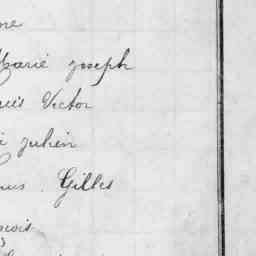 ne
Marie joseph
uis Victor
i julien
nus. Gilles
çois